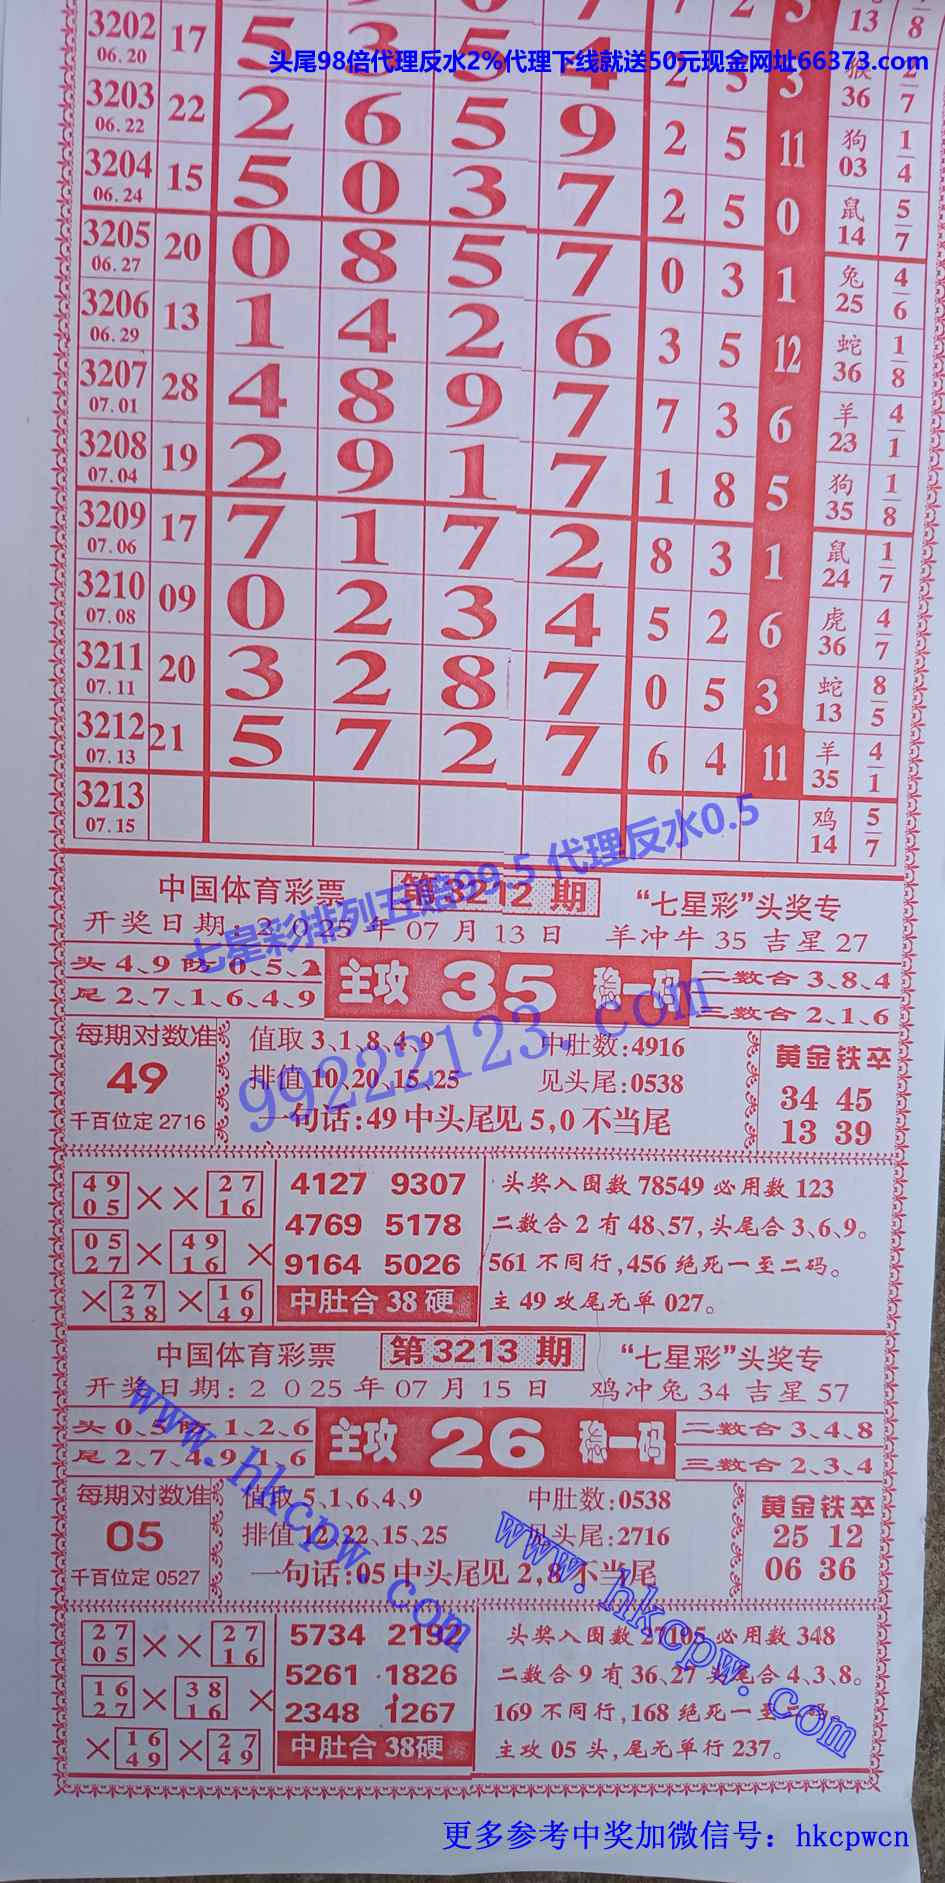 头尾98倍代理反水2%代理下线就送50元现金网址66373.com
7 2 3 13 8
3202 06.20 17 5 3 5 4 2 5 3 猴 36 2/7
3203 06.22 22 2 6 5 9 2 5 11 狗 03 1/4
3204 06.24 15 5 0 3 7 2 5 0 鼠 14 5/7
3205 06.27 20 0 8 5 7 0 3 1 兔 25 4/6
3206 06.29 13 1 4 2 6 3 5 12 蛇 36 1/8
3207 07.01 28 4 8 9 7 7 3 6 羊 23 4/1
3208 07.04 19 2 9 1 7 1 8 5 狗 35 1/8
3209 07.06 17 7 1 7 2 8 3 1 鼠 24 1/7
3210 07.08 09 0 2 3 4 5 2 6 虎 36 4/7
3211 07.11 20 3 2 8 7 0 5 3 蛇 13 8/5
3212 07.13 21 5 7 2 7 6 4 11 羊 35 4/1
3213 07.15 鸡 14 5/7
七星彩排列五赔99.5 代理反水0.5
中国体育彩票 第3212期 “七星彩”头奖专
开奖日期:2025年07月13日 羊冲牛35吉星27
头4、9防0、5、2 主攻 35 稳一码 二数合3、8、4
尾2、7、1、6、4、9 三数合2、1、6
99222123.com
每期对数准 值取3、1、8、4、9 中肚数:4916 黄金铁卒
49 排值10、20、15、25 见头尾:0538 34 45
千百位定2716 一句话:49中头尾见5,0不当尾 13 39
49 05 × × 27 16 4127 9307 头奖入围数78549必用数123
05 27 × 49 16 × 4769 5178 二数合2有48、57,头尾合3、6、9。
9164 5026 561不同行,456绝死一至二码。
× 27 38 × 16 49 中肚合38硬 主49攻尾无单027。
中国体育彩票 第3213期 “七星彩”头奖专
开奖日期:2025年07月15日 鸡冲兔34吉星57
头0、5防1、2、6 主攻 26 稳一码 二数合3、4、8
尾2、7、4、9、1、6 三数合2、3、4
www.hkcpw.com
每期对数准 值取5、1、6、4、9 中肚数:0538 黄金铁卒
05 排值12、22、15、25 见头尾:2716 25 12
千百位定0527 一句话:05中头尾见2,8不当尾 06 36
www.hkcpw.com
27 05 × × 27 16 5734 2192 头奖入围数27195必用数348
16 27 × 38 16 × 5261 1826 二数合9有36、27头尾合4、3、8。
2348 1267 169不同行,168绝死一至二码
× 16 49 × 27 49 中肚合38硬 主攻05头,尾无单行237。
更多参考中奖加微信号：hkcpwcn